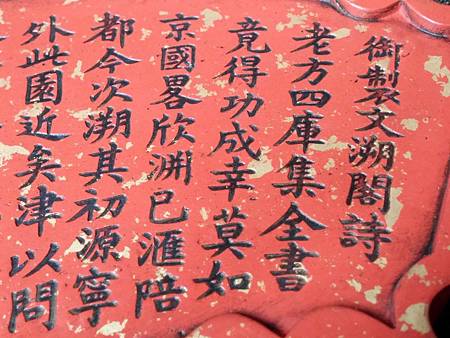 御製文溯閣詩
老方四庫集全書
竟得功成幸莫如
京國畧欣淵已滙陪
都今次溯其初源寧
外此園近矣津以問